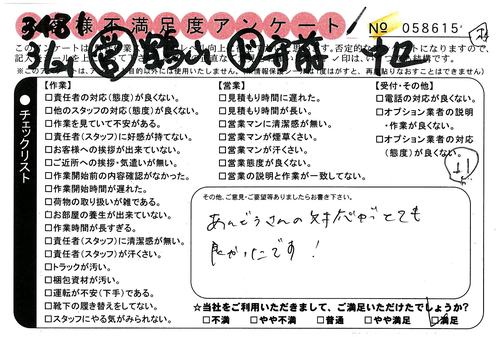 お客様不満足度アンケート
No 058615
【作業】
□責任者の対応(態度)が良くない。
□他のスタッフの対応(態度)が良くない。
□作業を見ていて不安がある。
□責任者(スタッフ)に好感が持てない。
□お客様への挨拶が出来ていない。
□ご近所への挨拶・気遣いが無い。
□作業開始前の内容確認がなかった。
□作業開始時間が遅れた。
□荷物の取り扱いが雑である。
□お部屋の養生が出来ていない。
□作業時間が長すぎる。
□責任者(スタッフ)に清潔感が無い。
□責任者(スタッフ)が汗くさい。
□トラックが汚い。
□梱包資材が汚い。
□運転が不安(下手)である。
□靴下の履き替えをしてない。
□スタッフにやる気がみられない。
【営業】
□見積もり時間に遅れた。
□見積もり時間が長い。
□営業マンに清潔感が無い。
□営業マンが煙草くさい。
□営業マンが汗くさい。
□営業態度が良くない。
□営業の説明と作業が一致してない。
【受付・その他】
□電話の対応が良くない。
□オプション業者の説明
・作業が良くない。
□オプション業者の対応
(態度)が良くない。
●チェックリスト
その他、ご意見・ご要望等ありましたらお書き下さい。
あんどうさんの対応がとても
良かったです!
☆当社をご利用いただきまして、ご満足いただけたでしょうか?
□不満 □やや不満 □普通 □やや満足 □満足